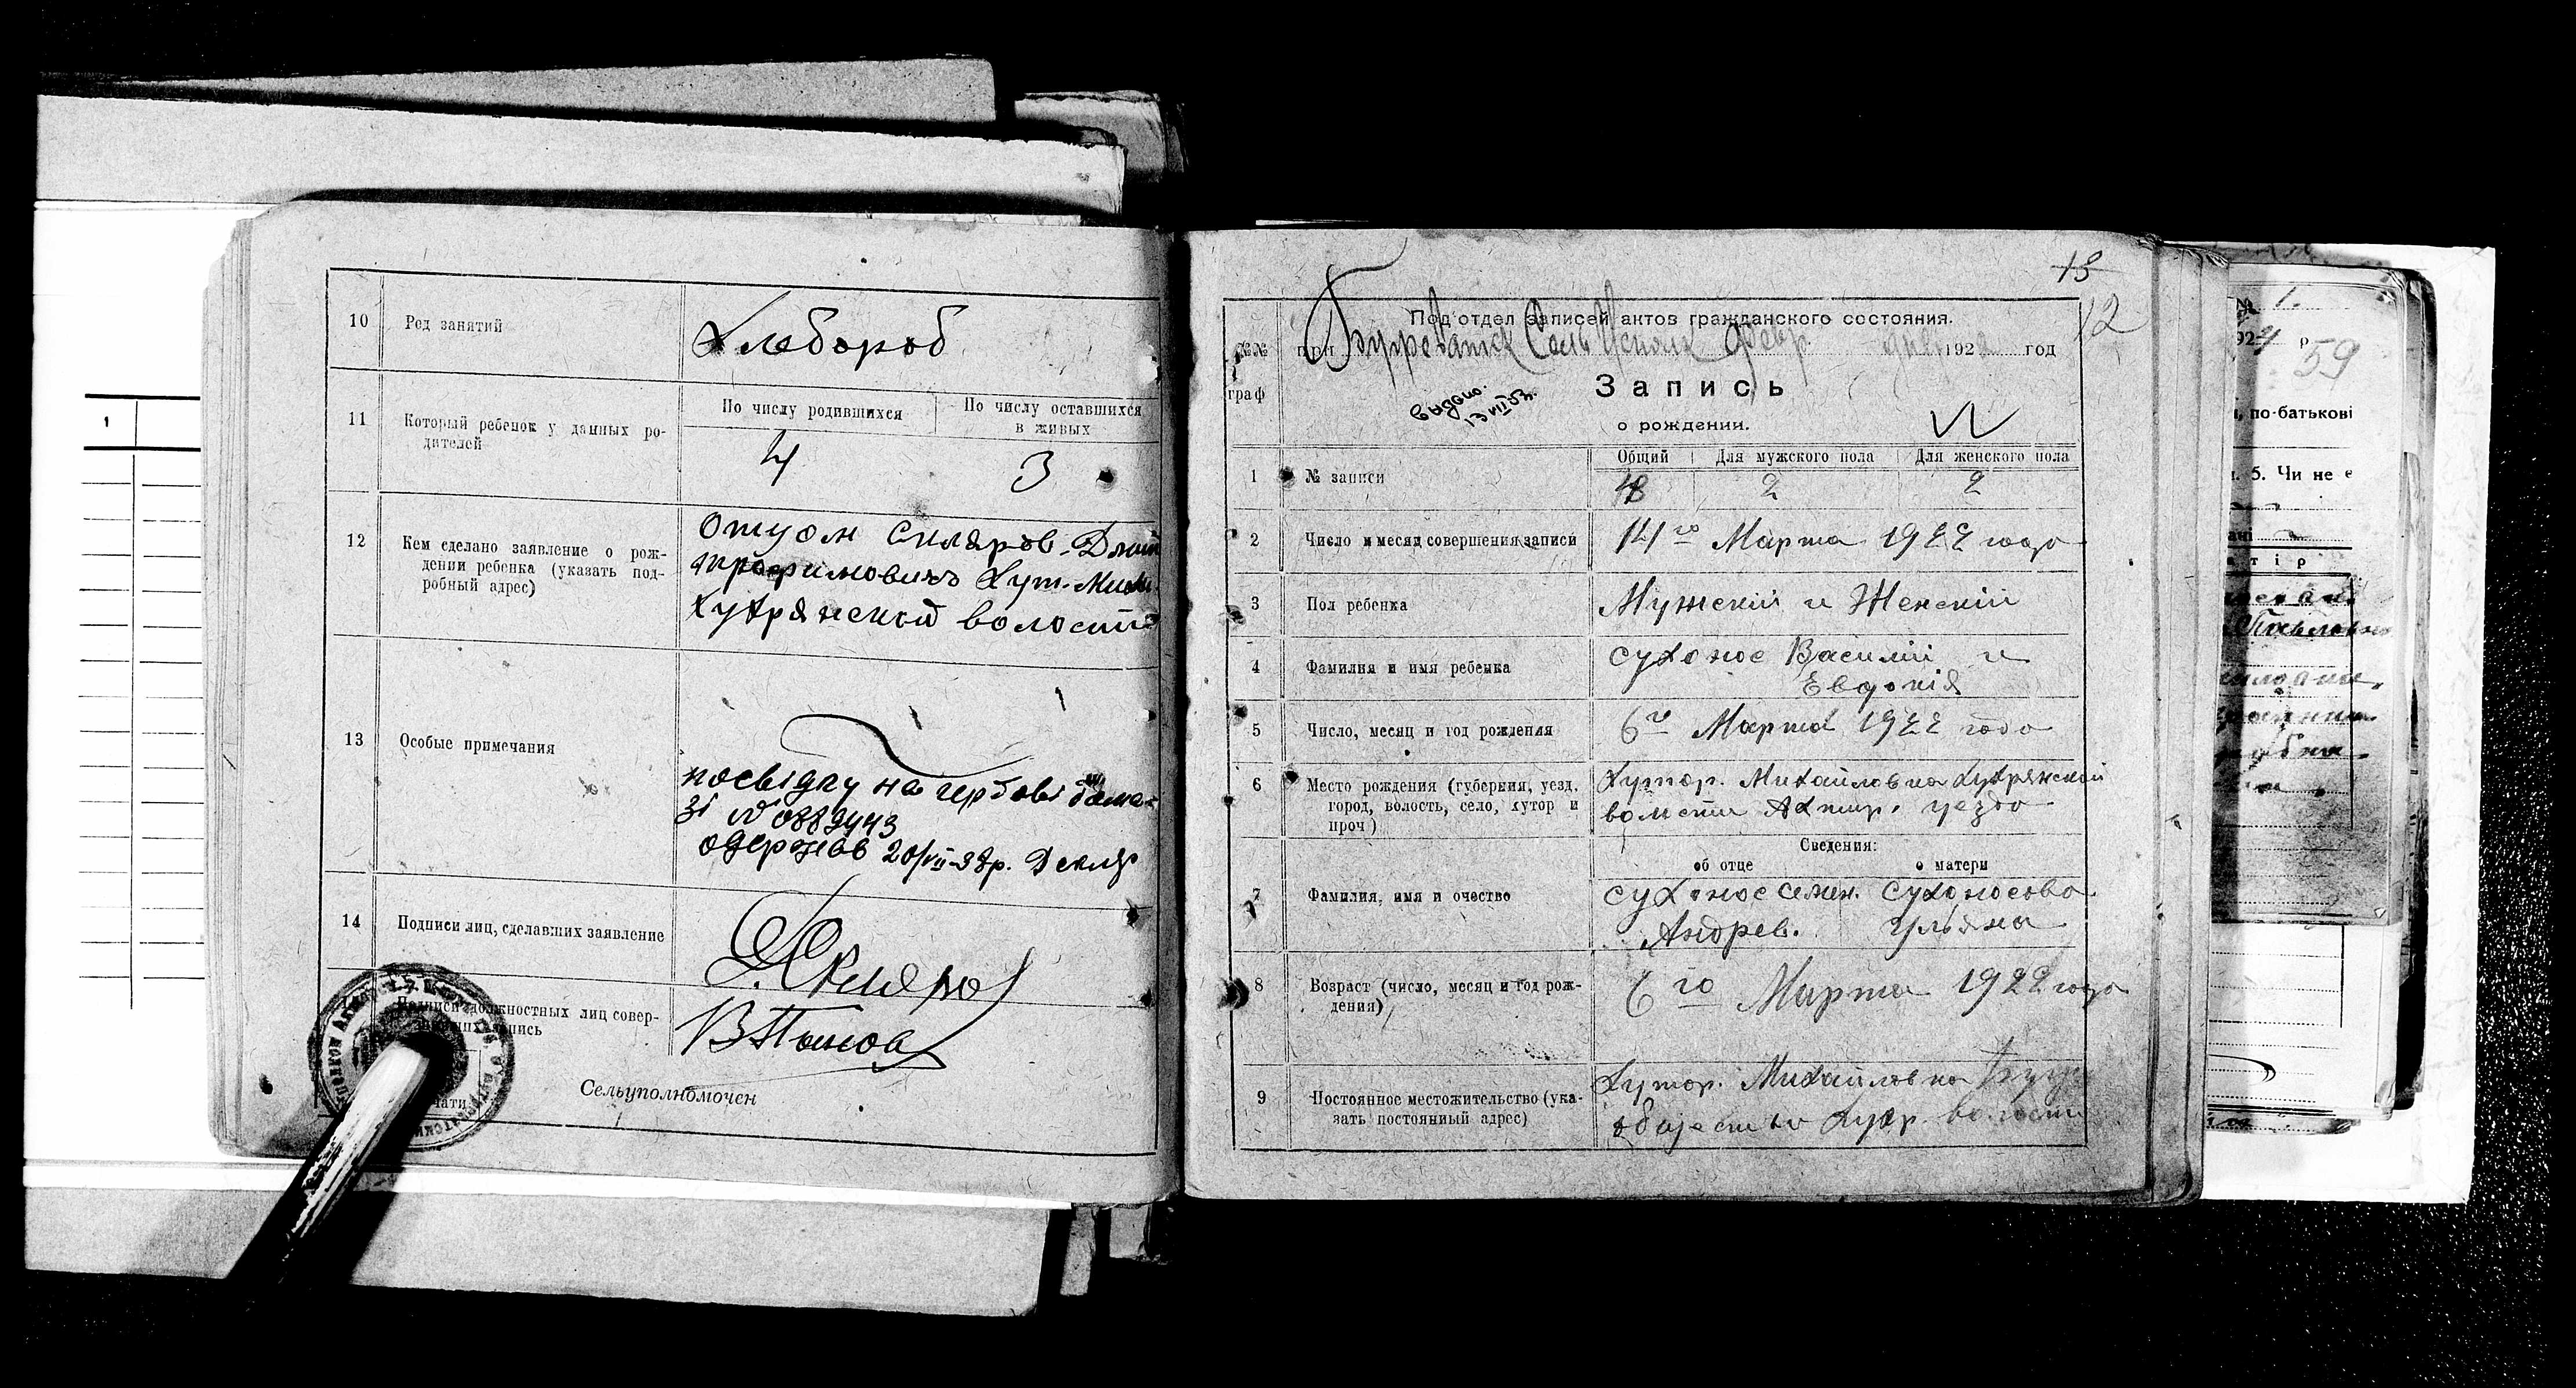 10
Род занятий
Хлебороб
11
Который ребенок у данных ро-
дителей
По числу родившихся
По числу оставшихся
в живых
4
3
12
Кем сделано заявление о рож-
дении ребенка (указать под-
робный адрес)
Отцом Скляров
Трофимовичъ Хут.
Хухрянской волости
13
Особые примечания
посвідку на гербові
зі №
одержав 20/VII-38р.
14
Подписи лиц, сделавших заявление
Подписи должностных лиц совер-
запись
Сельуполномочен
13
12
Под'отдел записей актов гражданского состояния.
№№
граф
при
192 год
Запись
о рождении.
выдано.
1
№ записи
Общий
Для мужского пола
Для женского пола
2
2
2
Число и месяц совершения записи
14го Марта 1922 года
3
Пол ребенка
Мужскій и Женскій
4
Фамилия и имя ребенка
Сухонос Василій и
Евдокія
5
Число, месяц и год рождения
6го Марта 1922 года
6
Место рождения (губерния, уезд,
город, волость, село, хутор и
проч)
Хутор. Михайловка Хухрянской
волости Ахтыр. уезда
Сведения:
об отце
о матери
7
Фамилия, имя и очество
Сухонос Семен.
Андрев.
Сухоносова
Ульяна
8
Возраст (число, месяц и год рож-
дения)
6го Марта 1922 года
9
Постоянное местожительство (ука-
зать постоянный адрес)
Хутор. Михайловка
общество Хухр. волости
1.
59
по-батькові
5. Чи не є
1